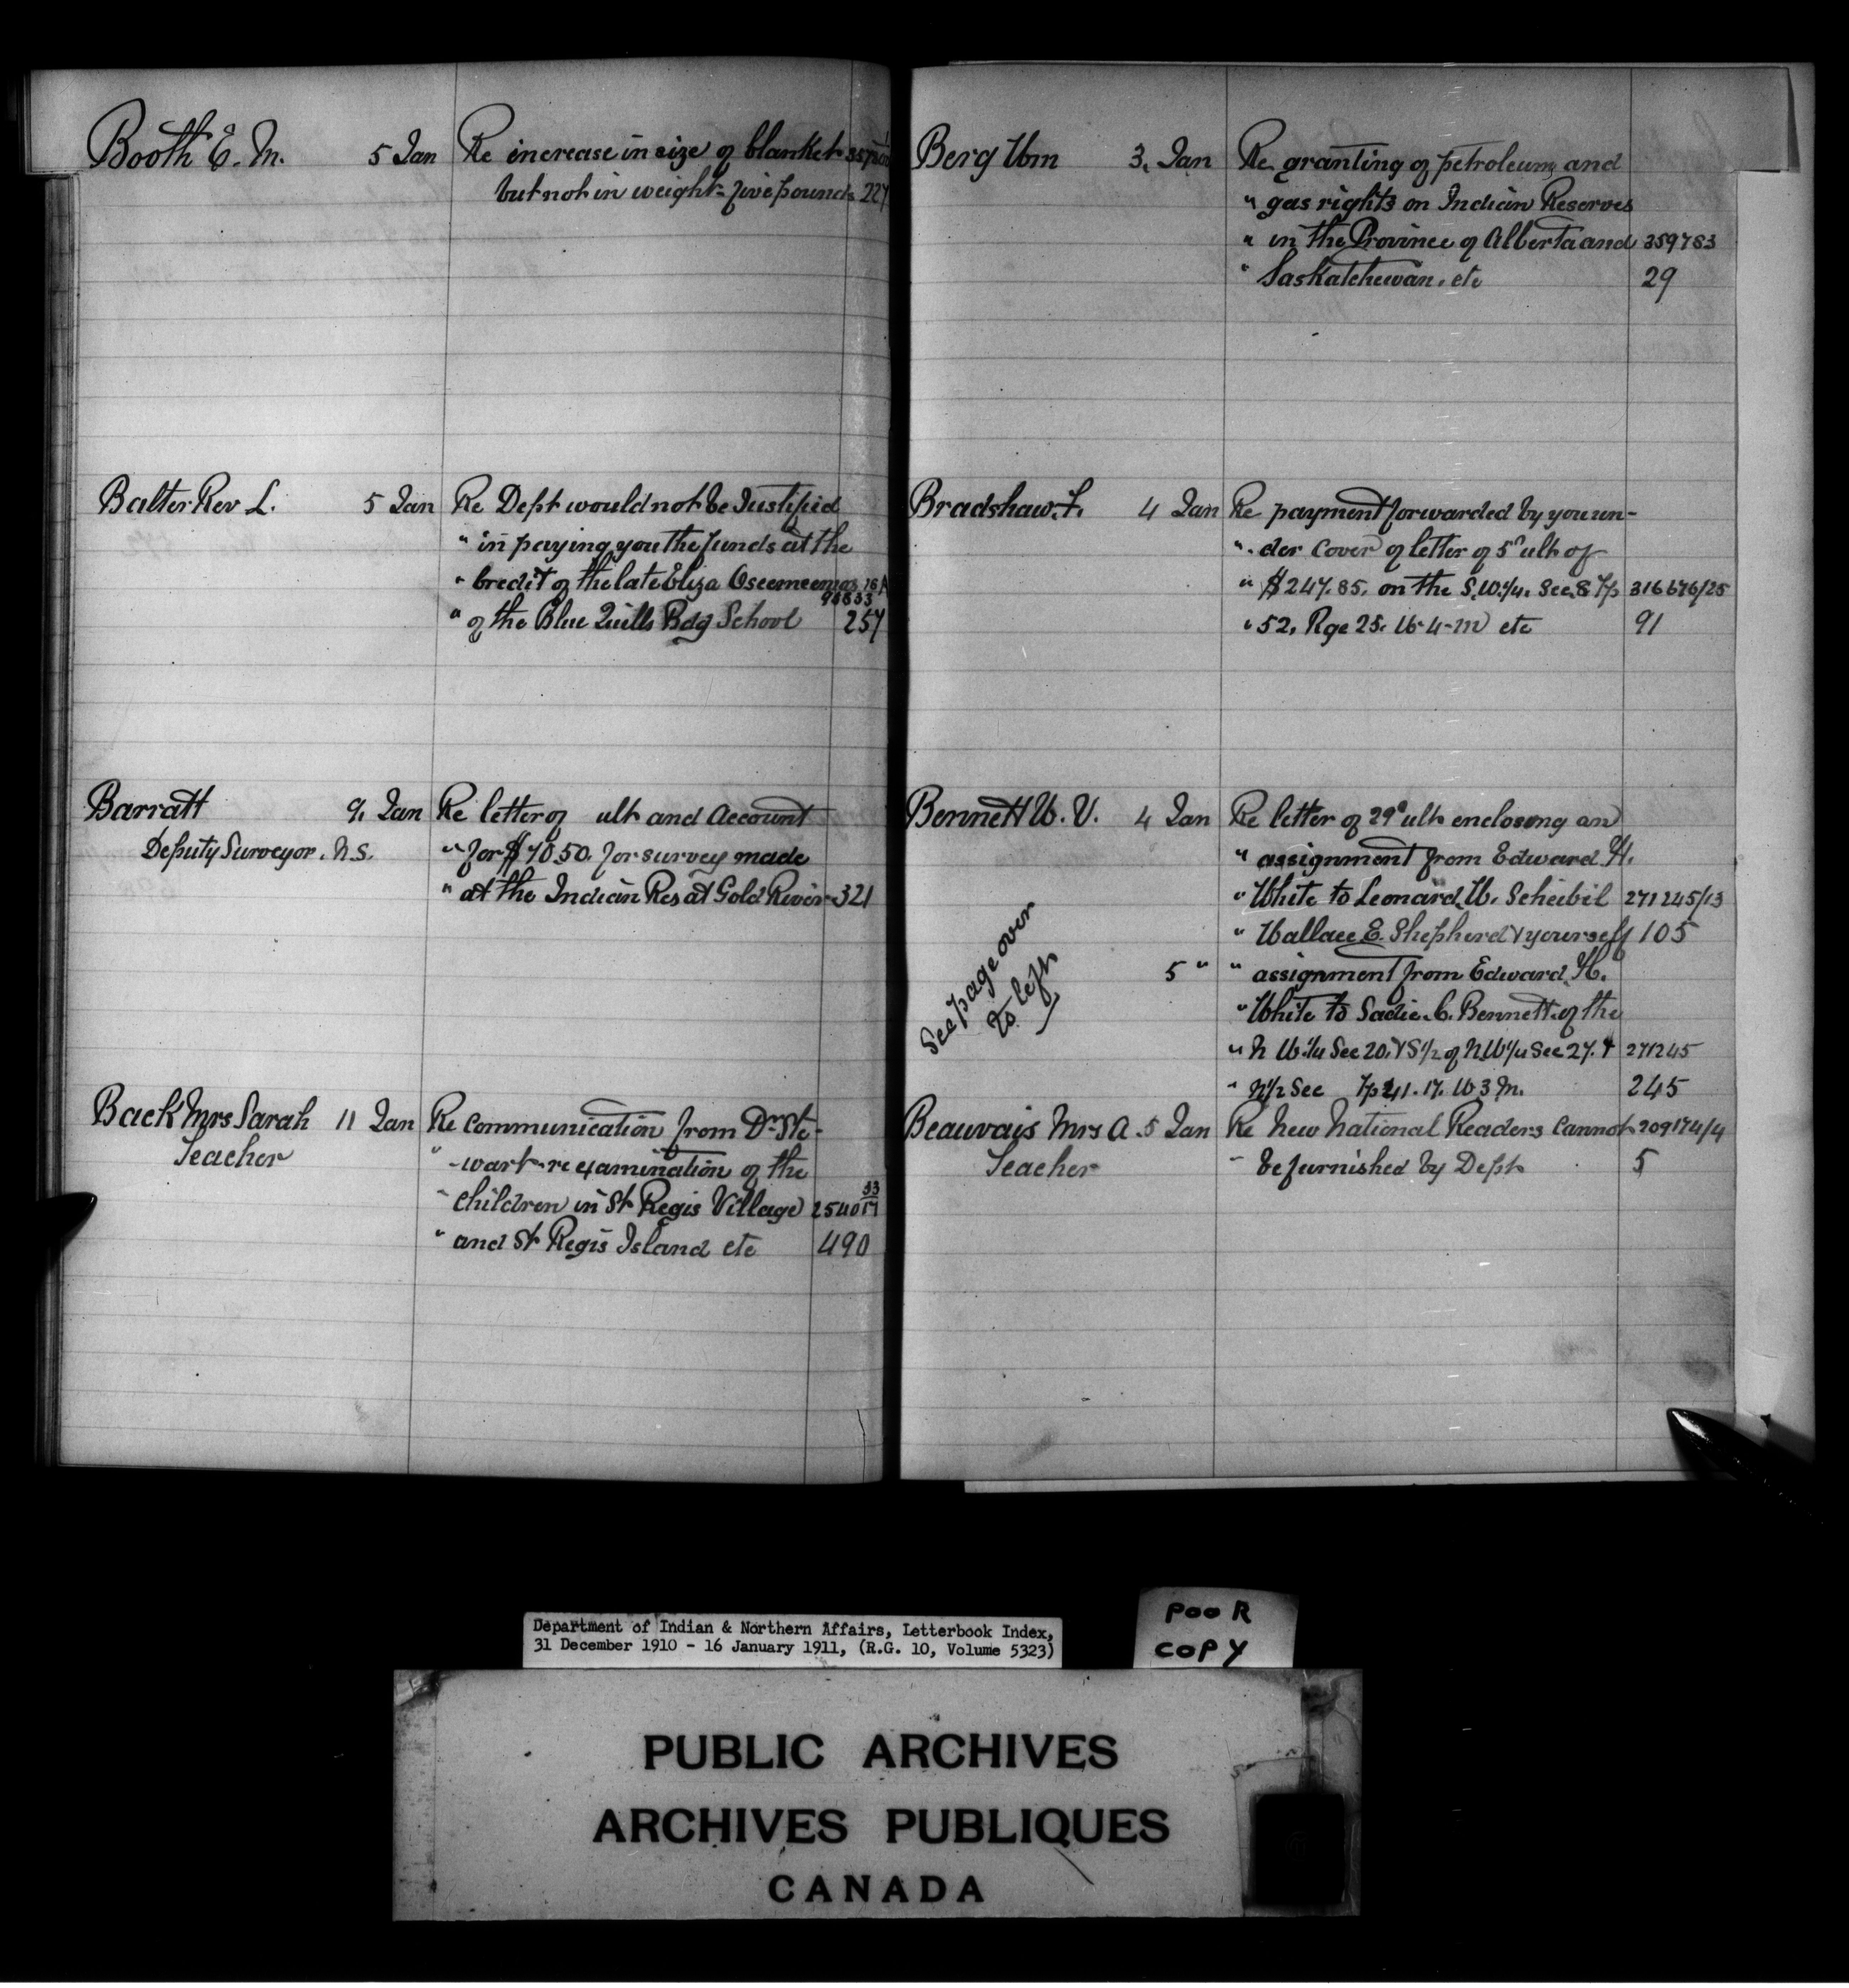 Booth E. M. 5 Jan Re increase in size of blanket
but not in weight - five pounds 227
Balter Rev L. 5 Jan Re Dept would not be Justified
" in paying you the funds at the
" Credit of the late Eliza
98833
" of the Blue Quills Bdg School 257
Barratt 9. Jan Re letter of ult and Account
Deputy Surveyor. N.S. " for $70.50. for survey made
" at the Indian Res at Gold River 321
Back Mrs Sarah 11 Jan Re Communication from Dr Ste-
Teacher " -wart - re examination of the
" Children in St Regis Village 254017 33
" and St Regis Island etc 490
Berg Wm 3. Jan Re granting of petroleum and
" gas rights on Indian Reserves
" in the Province of Alberta and 359783
" Saskatchewan. etc 29
Bradshaw. F. 4 Jan Re payment forwarded by you un-
" der cover of letter of 5th ult of
" $247.85. on the S.W.¼. Sec. 8 Tp 316676/25
" 52. Rge 25. W-4-M etc 91
Bennett W. V. 4 Jan Re letter of 29th ult enclosing an
" assignment from Edward H.
" White to Leonard. W. Scheibil 271245/13
" Wallace E. Shepherd & yourself 105
See page over
to left
5 " " assignment from Edward H.
" White to Sadie. C. Bennett of the
" N W.¼ Sec 20. & S½ of N.W¼ Sec 27. & 271245
" N½ Sec Tp 41. 17. W 3 M. 245
Beauvais Mrs A. 5 Jan Re New National Readers Cannot 209174/4
Teacher " be furnished by Dept 5
Department of Indian & Northern Affairs, Letterbook Index,
31 December 1910 - 16 January 1911, (R.G. 10, Volume 5323)
POOR
COPY
PUBLIC ARCHIVES
ARCHIVES PUBLIQUES
CANADA